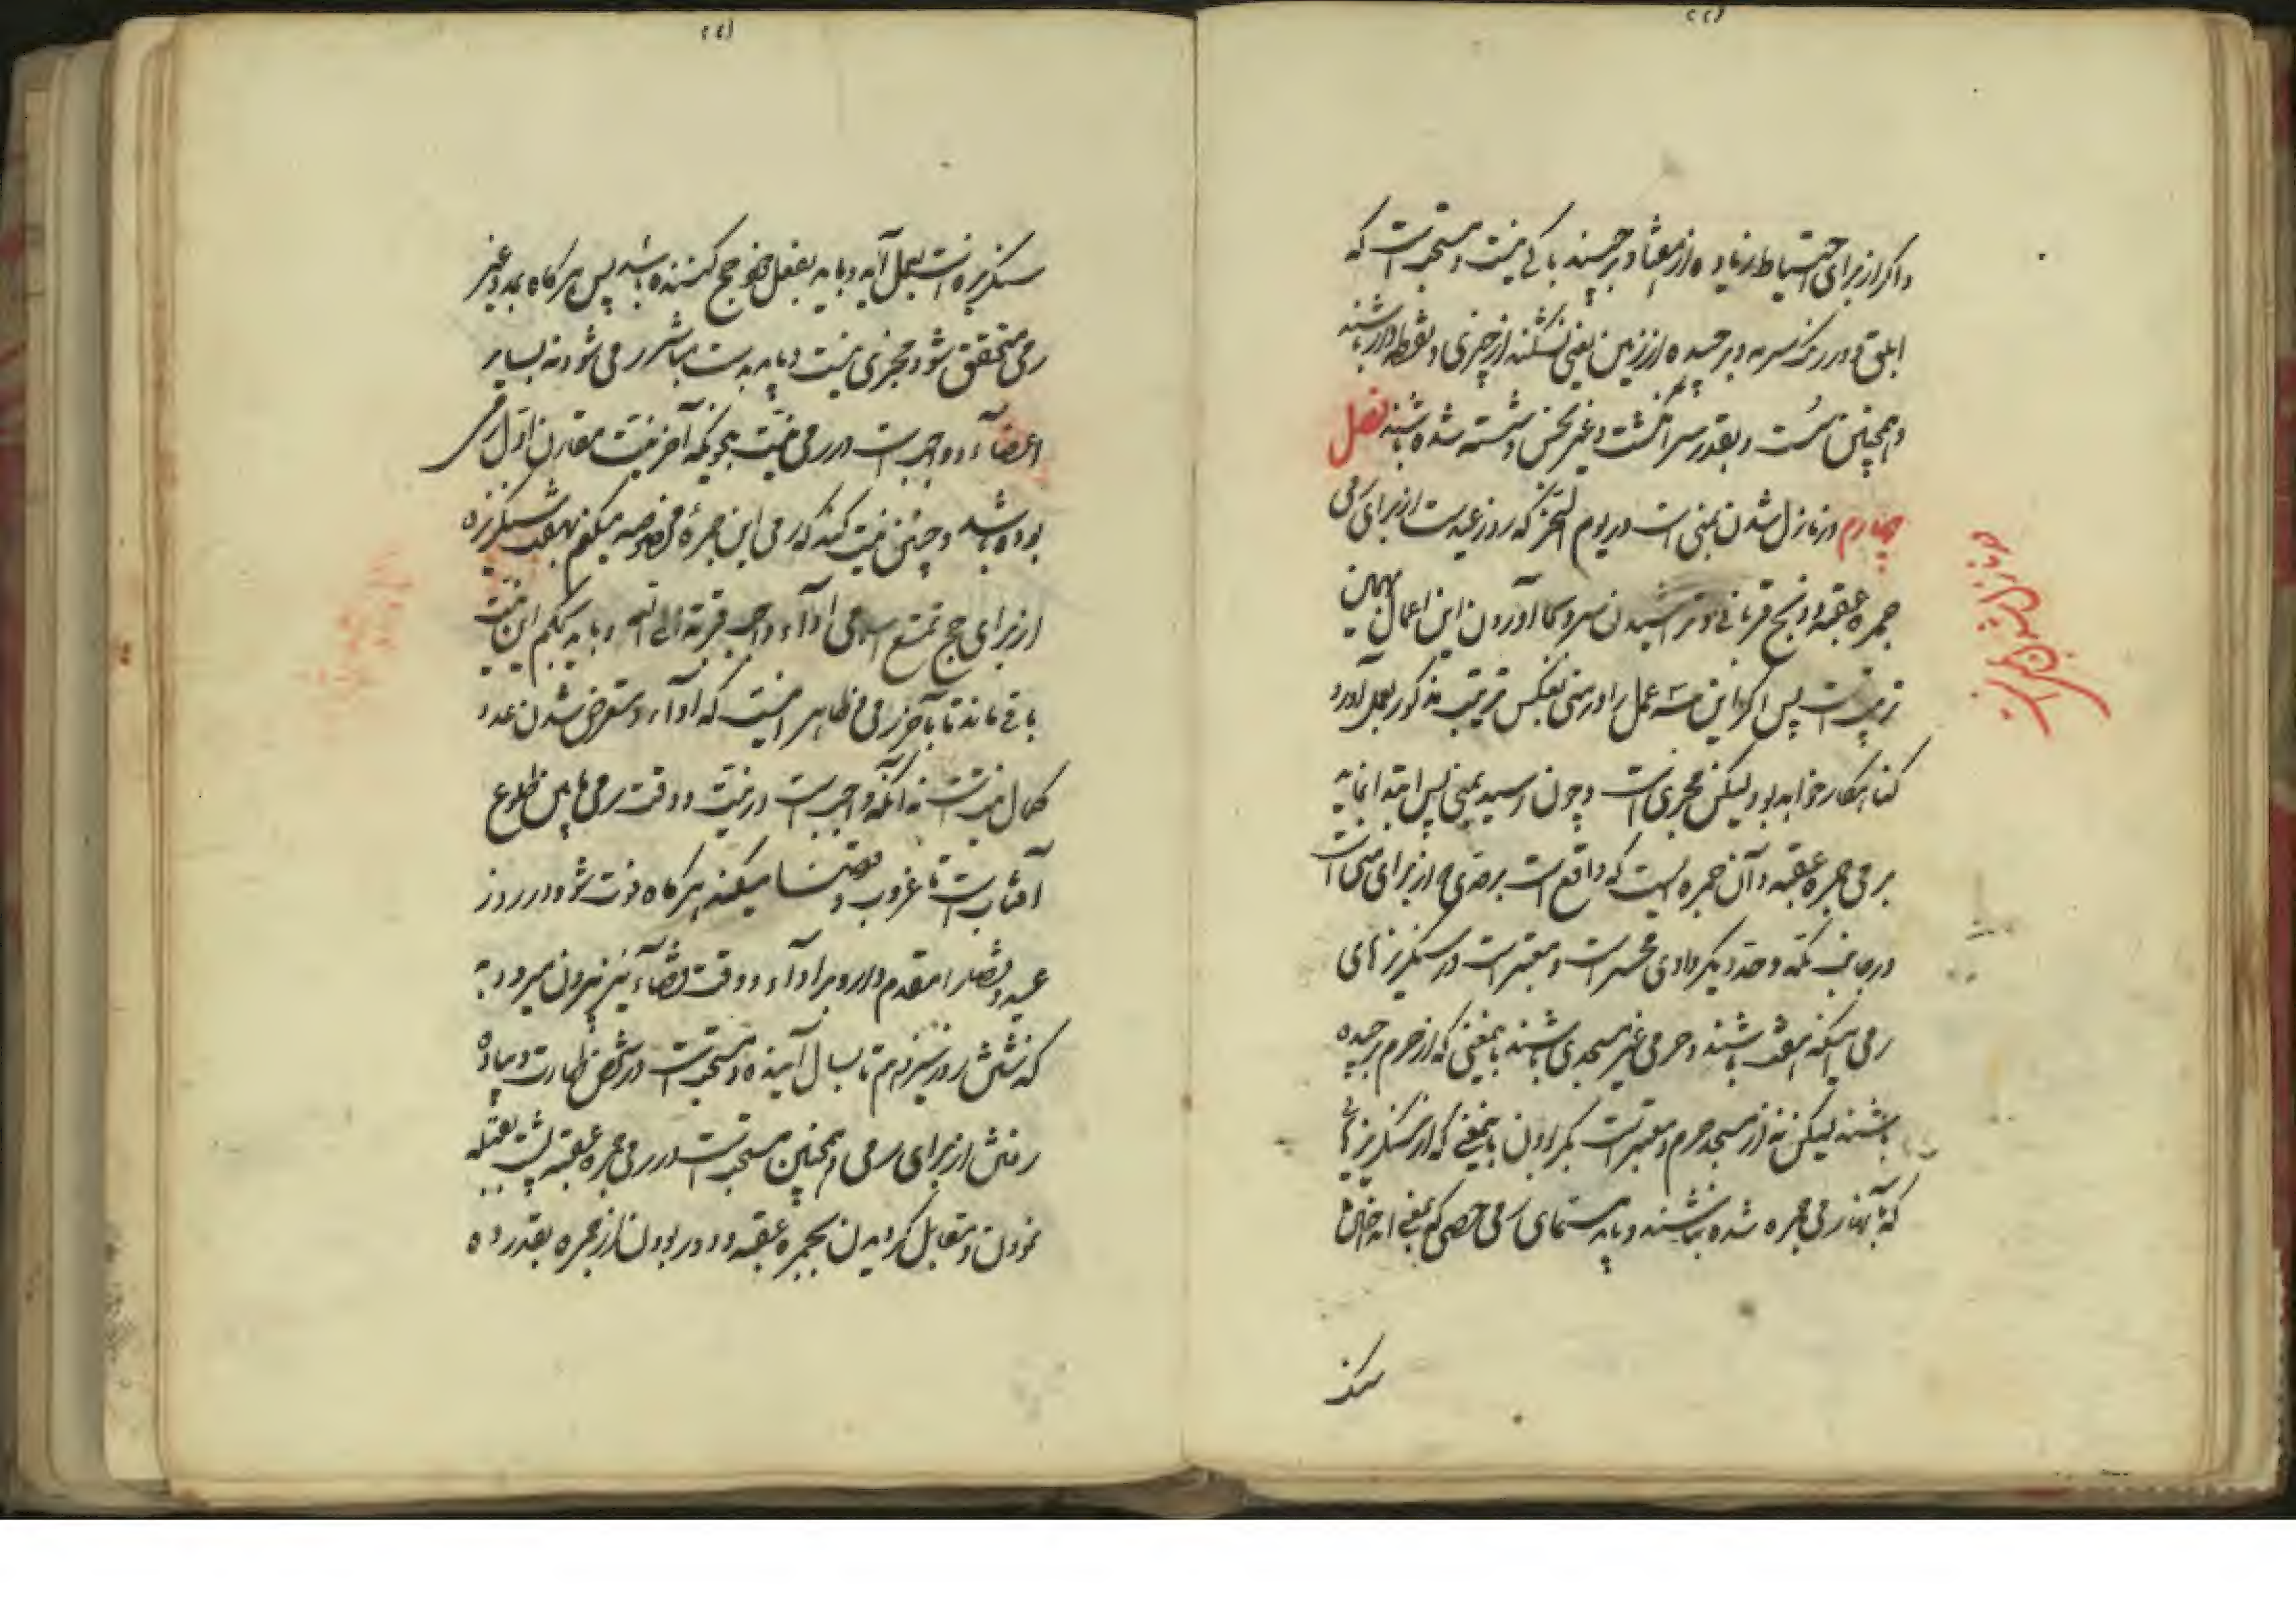 و اگر از برای احتیاط زیاده از هفتاد برچیند باکی نیست و مستحب است که
ابلق و در رنگ سرمه و برچیده از زمین یعنی نشکنند از چیزی و نقطه‌دار باشند
و همچنین سست و بقدر سر انگشت و غیر نجس و شسته شده باشند فصل
چهارم در نازل شدن بمنی است در یوم النحر که روز عید است از برای رمی
جمره عقبه و ذبح قربانی و تراشیدن سر و بجا آوردن این اعمال بهمین
ترتیبست پس اگر این سه عمل را در منی بعکس ترتیب مذکور بعمل آورد
گناهکار خواهد بود لیکن مجزی است و چون رسید بمنی پس ابتدا نماید
برمی جمره عقبه و آن جمره ایست که واقع است بر حدی از برای منی است
در جانب مکه و حد دیگر وادی محسر است و معتبر است در سنگریزهای
رمی اینکه هفت باشند و حرمی غیر مسجدی باشند بمعنی که از حرم برچیده
باشند لیکن نه از مسجد حرم و معتبر است بکر بودن بمعنی که از سنگریزهائی
که بآنها رمی جمره شده نباشند و باید مسمای رمی حصی که بمعنی انداختن
سنگ
در نازل شدن بمنی است
سنگریزه است بعمل آید و باید بفعل خود حج کننده باشد پس هرگاه بمدد غیر
رمی متحقق شود مجزی نیست و باید بدست مباشر رمی شود نه بسایر
اعضآء و واجب است در رمی نیت بنحویکه آخر نیت مقارن اول رمی
بوده باشد و چنین نیت کند که رمی این جمرۀ مخصوصه میکنم بهفت سنگریزه
از برای حج تمتع اسلامی ادآء واجب قربة الی الله و باید بحکم این نیت
باقی ماند تا بآخر رمی و ظاهر اینست که ادآء و متعرض شدن عدد
کمال نیت است نه آنکه واجب است در نیت و وقت رمی مابین طلوع
آفتاب است تا غروب و قضا میکند هرگاه فوت شود در روز
عید و قضا را مقدم دارد بر ادآء و وقت قضآء نیز بیرون میرود به
گذشتن روز سیزدهم تا بسال آینده و مستحب است در شخص طهارت و پیاده
رفتن از برای رمی و همچنین مستحب است در رمی جمره عقبه پشت بقبله
نمودن و مقابل گردیدن بجمره عقبه و دور بودن از جمره بقدر ده